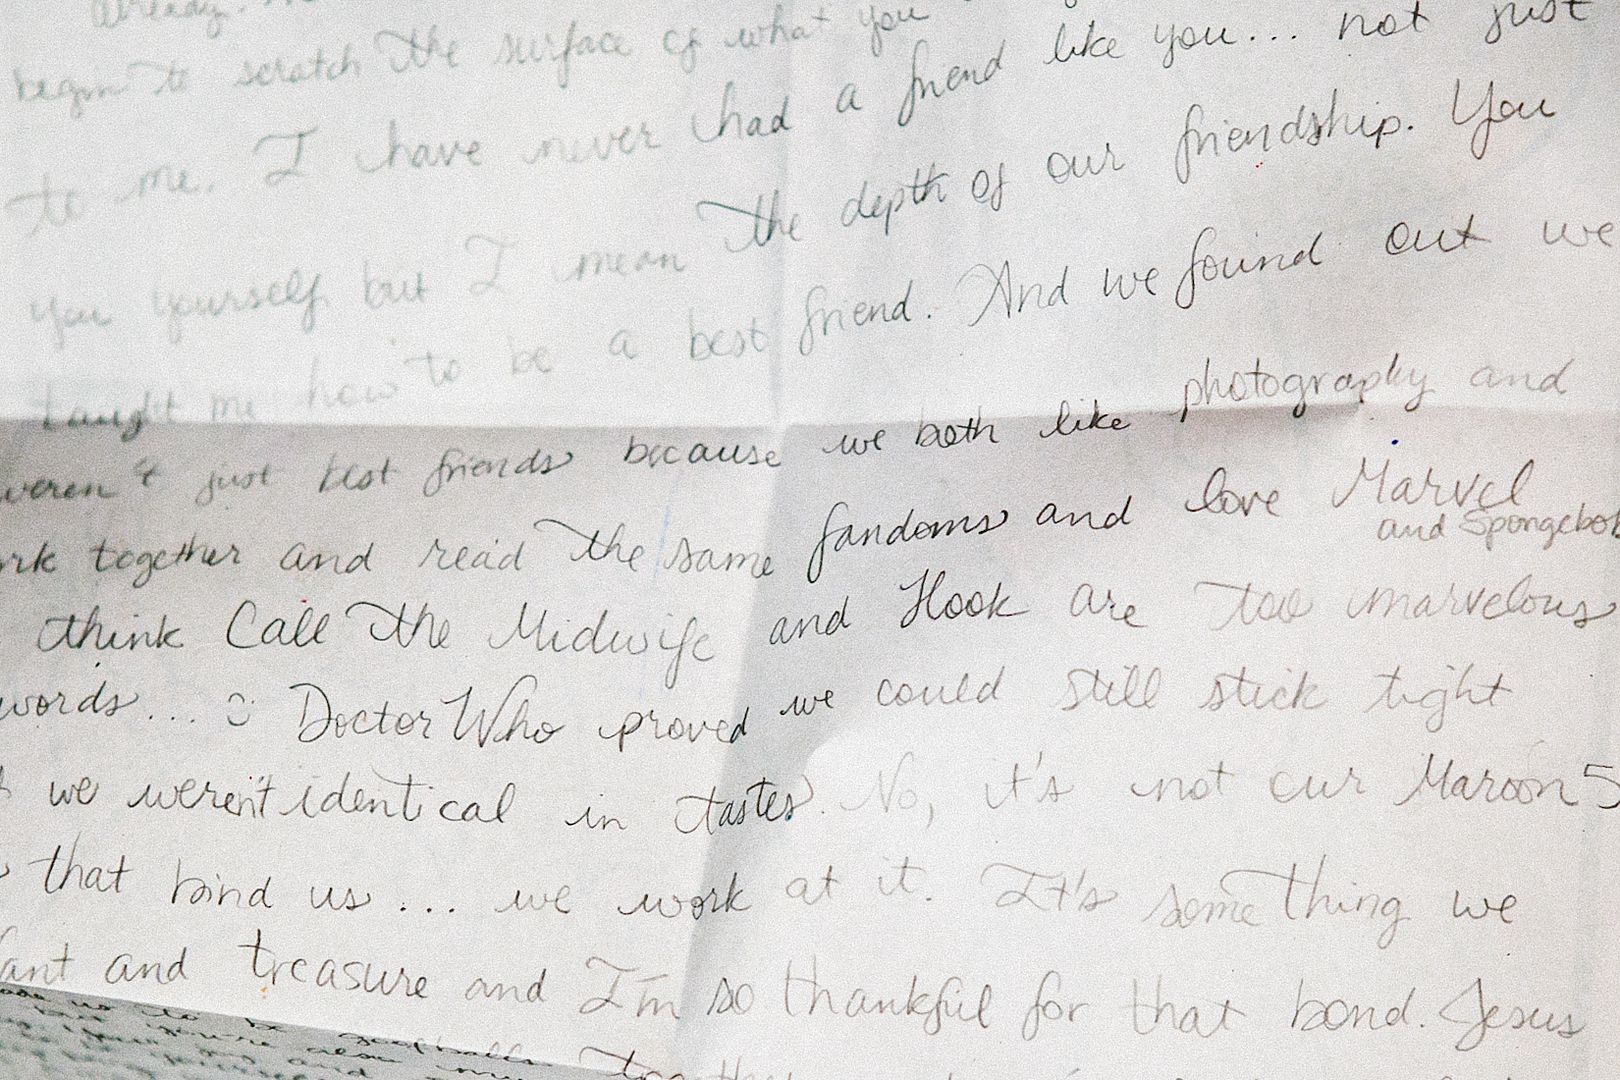 already.
begin to scratch the surface of what you
to me. I have never had a friend like you... not just
you yourself but I mean the depth of our friendship. You
taught me how to be a best friend. And we found out we
weren't just best friends because we both like photography and
together and read the same fandoms and love Marvel
and Spongebob
think Call the Midwife and Hook are too marvelous
words... :) Doctor Who proved we could still stick tight
we weren't identical in tastes. No, it's not our Maroon 5
that bind us... we work at it. It's something we
and treasure and I'm so thankful for that bond. Jesus